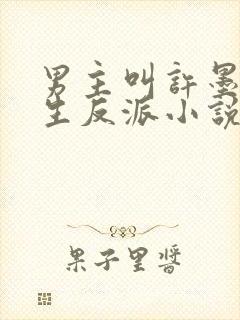 男主叫許墨
生反派小說
果子里醬